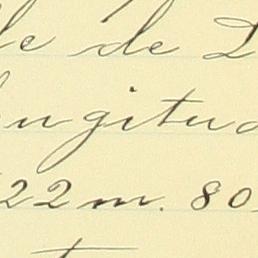 le de D
ngitud
22 m. 80